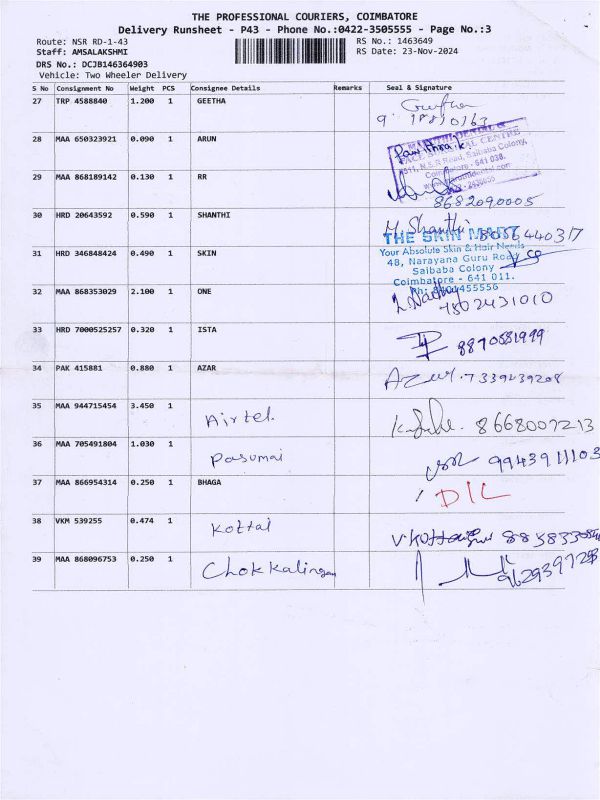 THE PROFESSIONAL COURIERS, COIMBATORE
Delivery Runsheet - P43 - Phone No.:0422-3505555 - Page No.:3
Route: NSR RD-1-43 RS No.: 1463649
Staff: AMSALAKSHMI RS Date: 23-Nov-2024
DRS No.: DCJB146364903
Vehicle: Two Wheeler Delivery
S No Consignment No Weight PCS Consignee Details Remarks Seal & Signature
27 TRP 4588840 1.200 1 GEETHA
28 MAA 650323921 0.090 1 ARUN
Pavithra.K
311, N.S.R Road, Saibaba Colony,
Coimbatore - 641 038.
29 MAA 868189142 0.130 1 RR
8682090005
30 HRD 20643592 0.590 1 SHANTHI M. Shanthi
THE SKIN MART
31 HRD 346848424 0.490 1 SKIN Your Absolute Skin & Hair Needs
48, Narayana Guru Road
Saibaba Colony
Coimbatore - 641 011.
32 MAA 868353029 2.100 1 ONE
7502431010
33 HRD 7000525257 0.320 1 ISTA 8870581999
34 PAK 415881 0.880 1 AZAR Azar. 7339439208
35 MAA 944715454 3.450 1 Airtel 8668007213
36 MAA 705491804 1.030 1 Pasumai 9943911103
37 MAA 866954314 0.250 1 BHAGA DIL
38 VKM 539255 0.474 1 Kottai
39 MAA 868096753 0.250 1 Chokkalingam